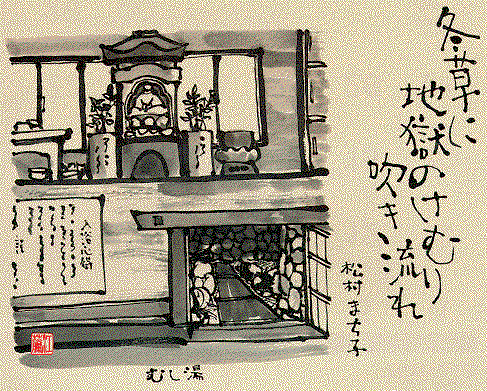 冬草に
地獄のけむり
吹き流れ
松村まち子
むし湯